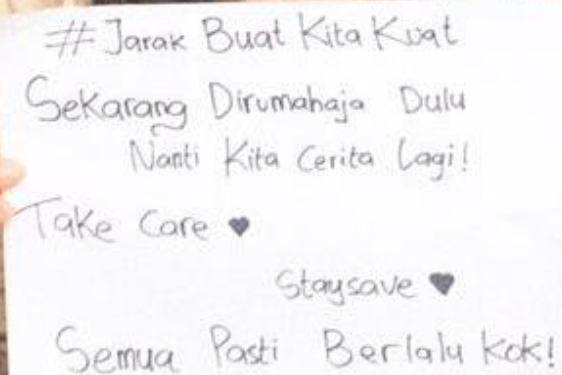 # Jarak Buat Kita Kuat
Sekarang Dirumahaja Dulu
Nanti Kita Cerita Lagi!
Take Care ♥
Staysave ♥
Semua Pasti Berlalu Kok!